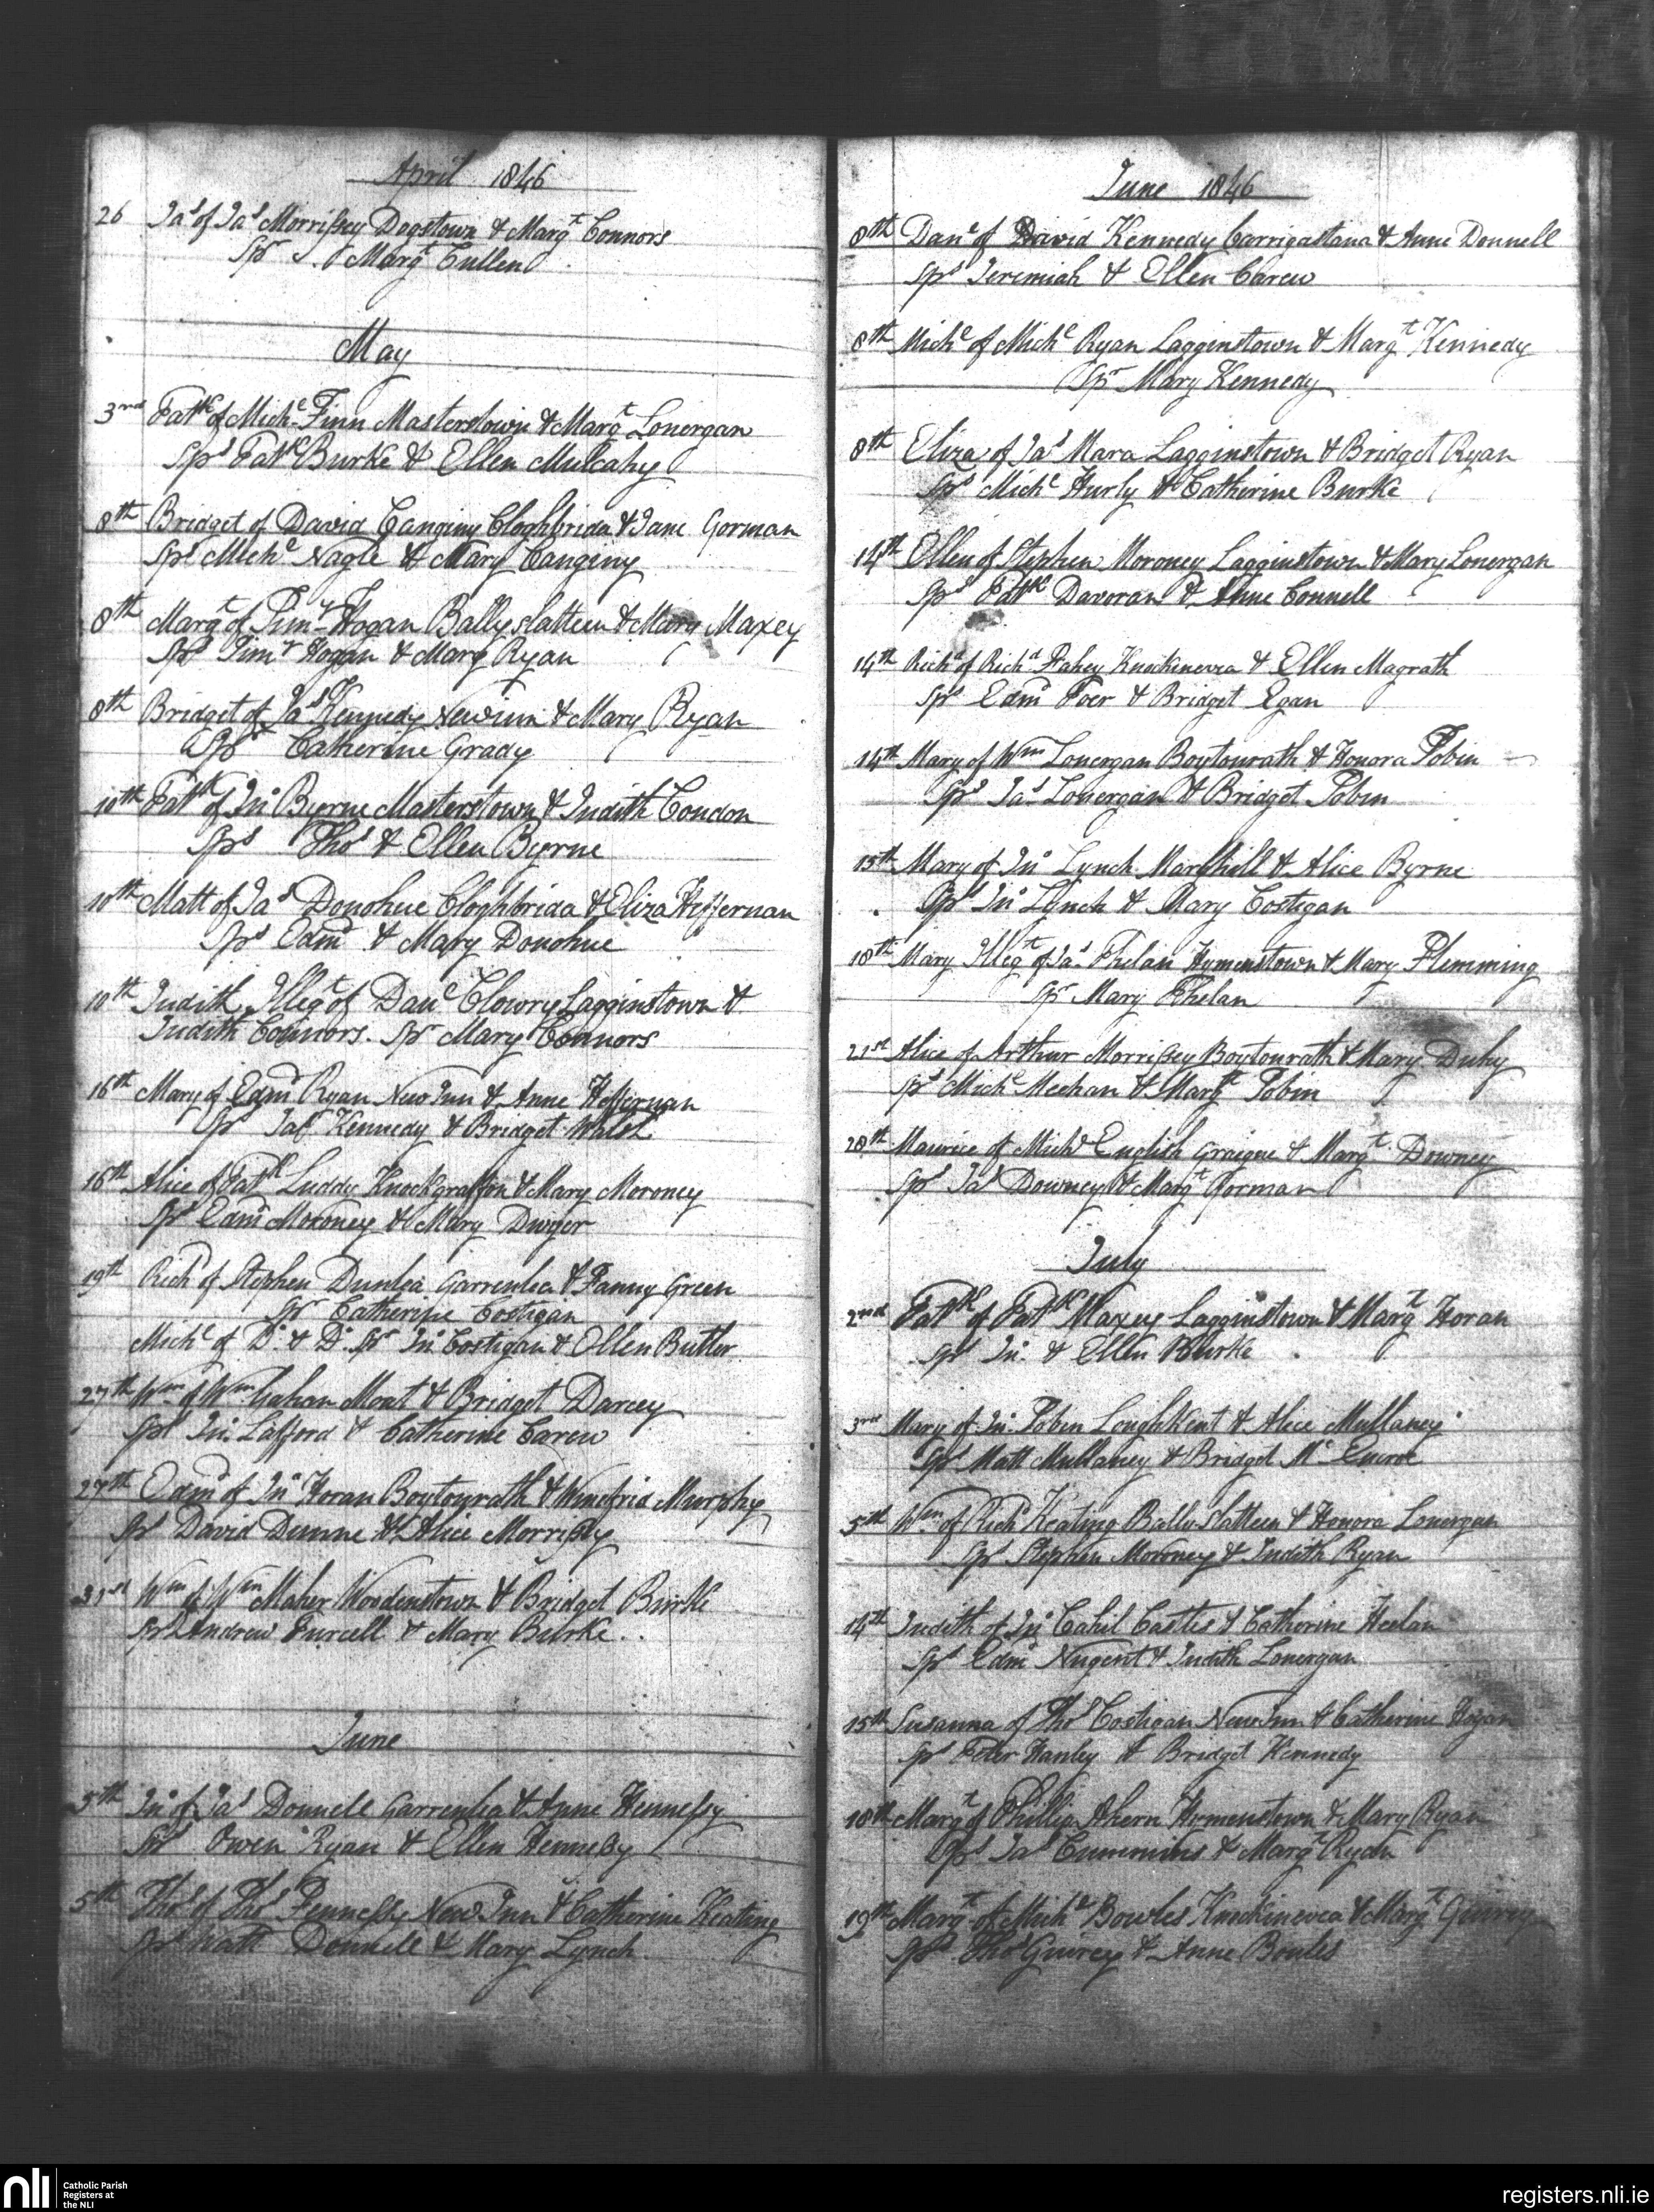 April 1846
26 Jas of Jas Morrissey Dogstown & Margt Connors
Spr Margt Cullen
May
3rd Patk of Michl Finn Masterstown & Margt Lonergan
Sps Patk Burke & Ellen Mulcahy
8th Bridget of David Canginy Cloghbrida & Jane Gorman
Sps Michl Nagle & Mary Canginy
8th Margt of Timy Hogan Ballyslatteen & Mary Maxey
Sps Timy Hogan & Mary Ryan
8th Bridget of Jas Kennedy Newinn & Mary Ryan
Spr Catherine Grady
10th Patk of Jno Byrne Masterstown & Judith Condon
Sps Thos & Ellen Byrne
10th Matt of Jas Donohue Cloghbrida & Eliza Heffernan
Sps Edmd & Mary Donohue
10th Judith Illegt of Danl Clowry Lagginstown &
Judith Connors. Spr Mary Connors
16th Mary of Edmd Ryan New Inn & Anne Heffernan
Sps Jas Kennedy & Bridget Walsh
16th Alice of Patk Luddy Knockgraffon & Mary Moroney
Sps Edmd Moroney & Mary Dwyer
19th Richd of Stephen Dunlea Garrenlea & Fanny Green
Spr Catherine Costigan
Michl of Do & Do Spr Jno Costigan & Ellen Butler
27th Wm of Wm Gahan Moat & Bridget Darcey
Sps Jno Lafford & Catherine Carew
27th Edmd of Jno Horan Boytonrath & Winefrid Murphy
Sps David Dunne & Alice Morrissy
31st Wm of Wm Maher Woodenstown & Bridget Burke
Sps Andrew Purcell & Mary Burke
June
5th Jno of Jas Donnell Garrenlea & Anne Hennessy
Sps Owen Ryan & Ellen Hennessy
5th Thos of Thos Fennessy New Inn & Catherine Keating
Sps Watt Donnell & Mary Lynch
June 1846
8th Danl of David Kennedy Carrigastana & Anne Donnell
Sps Jeremiah & Ellen Carew
8th Michl of Michl Ryan Lagginstown & Margt Kennedy
Spr Mary Kennedy
8th Eliza of Jas Mara Lagginstown & Bridget Ryan
Sps Michl Hurly & Catherine Burke
14th Ellen of Stephen Moroney Lagginstown & Mary Lonergan
Sps Patk Davoran & Anne Connell
14th Richd of Richd Fahey Knockinevea & Ellen Magrath
Sps Edmd Poer & Bridget Egan
14th Mary of Wm Lonergan Boytonrath & Honora Tobin
Sps Jas Lonergan & Bridget Tobin
15th Mary of Jno Lynch Marshill & Alice Byrne
Sps Jno Lynch & Mary Costigan
18th Mary Illegt of Jas Phelan Hymenstown & Mary Flemming
Spr Mary Phelan
21st Alice of Arthur Morrissey Boytonrath & Mary Duhy
Sps Michl Meehan & Margt Tobin
28th Maurice of Michl English Graigue & Margt Downey
Sps Jas Downey & Margt Gorman
July
2nd Patk of Patk Maxey Lagginstown & Margt Horan
Sps Jno & Ellen Burke
3rd Mary of Jno Tobin Loughkent & Alice Mullaney
Sps Matt Mullaney & Bridget Mc Enroe
5th Wm of Richd Keating Ballyslatteen & Honora Lonergan
Sps Stephen Moroney & Judith Ryan
14th Judith of Jno Cahil Castles & Catherine Heelan
Sps Edmd Nugent & Judith Lonergan
15th Susanna of Thos Costigan New Inn & Catherine Hogan
Sps Peter Hanley & Bridget Kennedy
18th Margt of Phillip Ahern Hymenstown & Mary Ryan
Sps Jas Cummins & Margt Ryan
19th Margt of Michl Bowles Knockinevea & Margt Guirey
Sps Thos Guirey & Anne Bowles
nli
Catholic Parish
Registers at
the NLI
registers.nli.ie